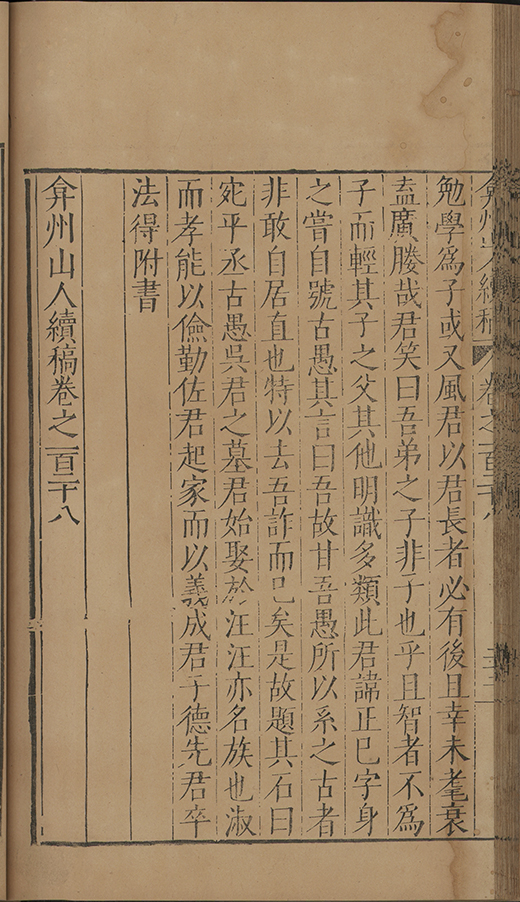 弇州山人續稿 卷之一百二十八
勉學爲子或又風君以君長者必有後且幸未耄衰
盍廣媵哉君笑曰吾弟之子非子也乎且智者不爲
子而輕其子之父其他明識多類此君諱正巳字身
之嘗自號古愚其言曰吾故甘吾愚所以系之古者
非敢自居直也特以去吾詐而已矣是故題其石曰
宛平丞古愚吳君之墓君始娶於汪汪亦名族也淑
而孝能以儉勤佐君起家而以義成君子德先君卒
法得附書
弇州山人續稿卷之一百二十八